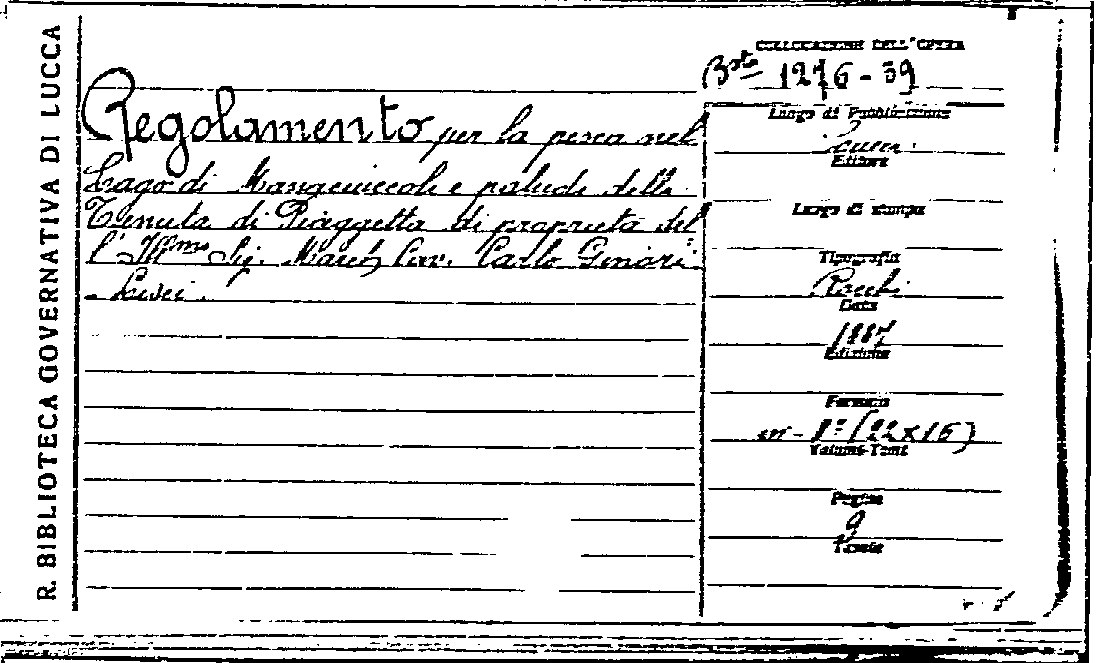 R. BIBLIOTECA GOVERNATIVA DI LUCCA
COLLOCAZIONE DELL'OPERA
Bsta 1276-39
Regolamento per la pesca nel
Lago di Mangiuccoli e palude della
Tenuta di Piaggetta di proprietà del
l'Ill.mo Sig. March. Cav. Carlo Ginori
Luogo di Pubblicazione
Lucca
Editore
Luogo di stampa
Tipografia
Rocchi
Data
1887
Edizione
Formato
in-8° (22x16)
Volumi-Tomi
Pagine
9
Tavole